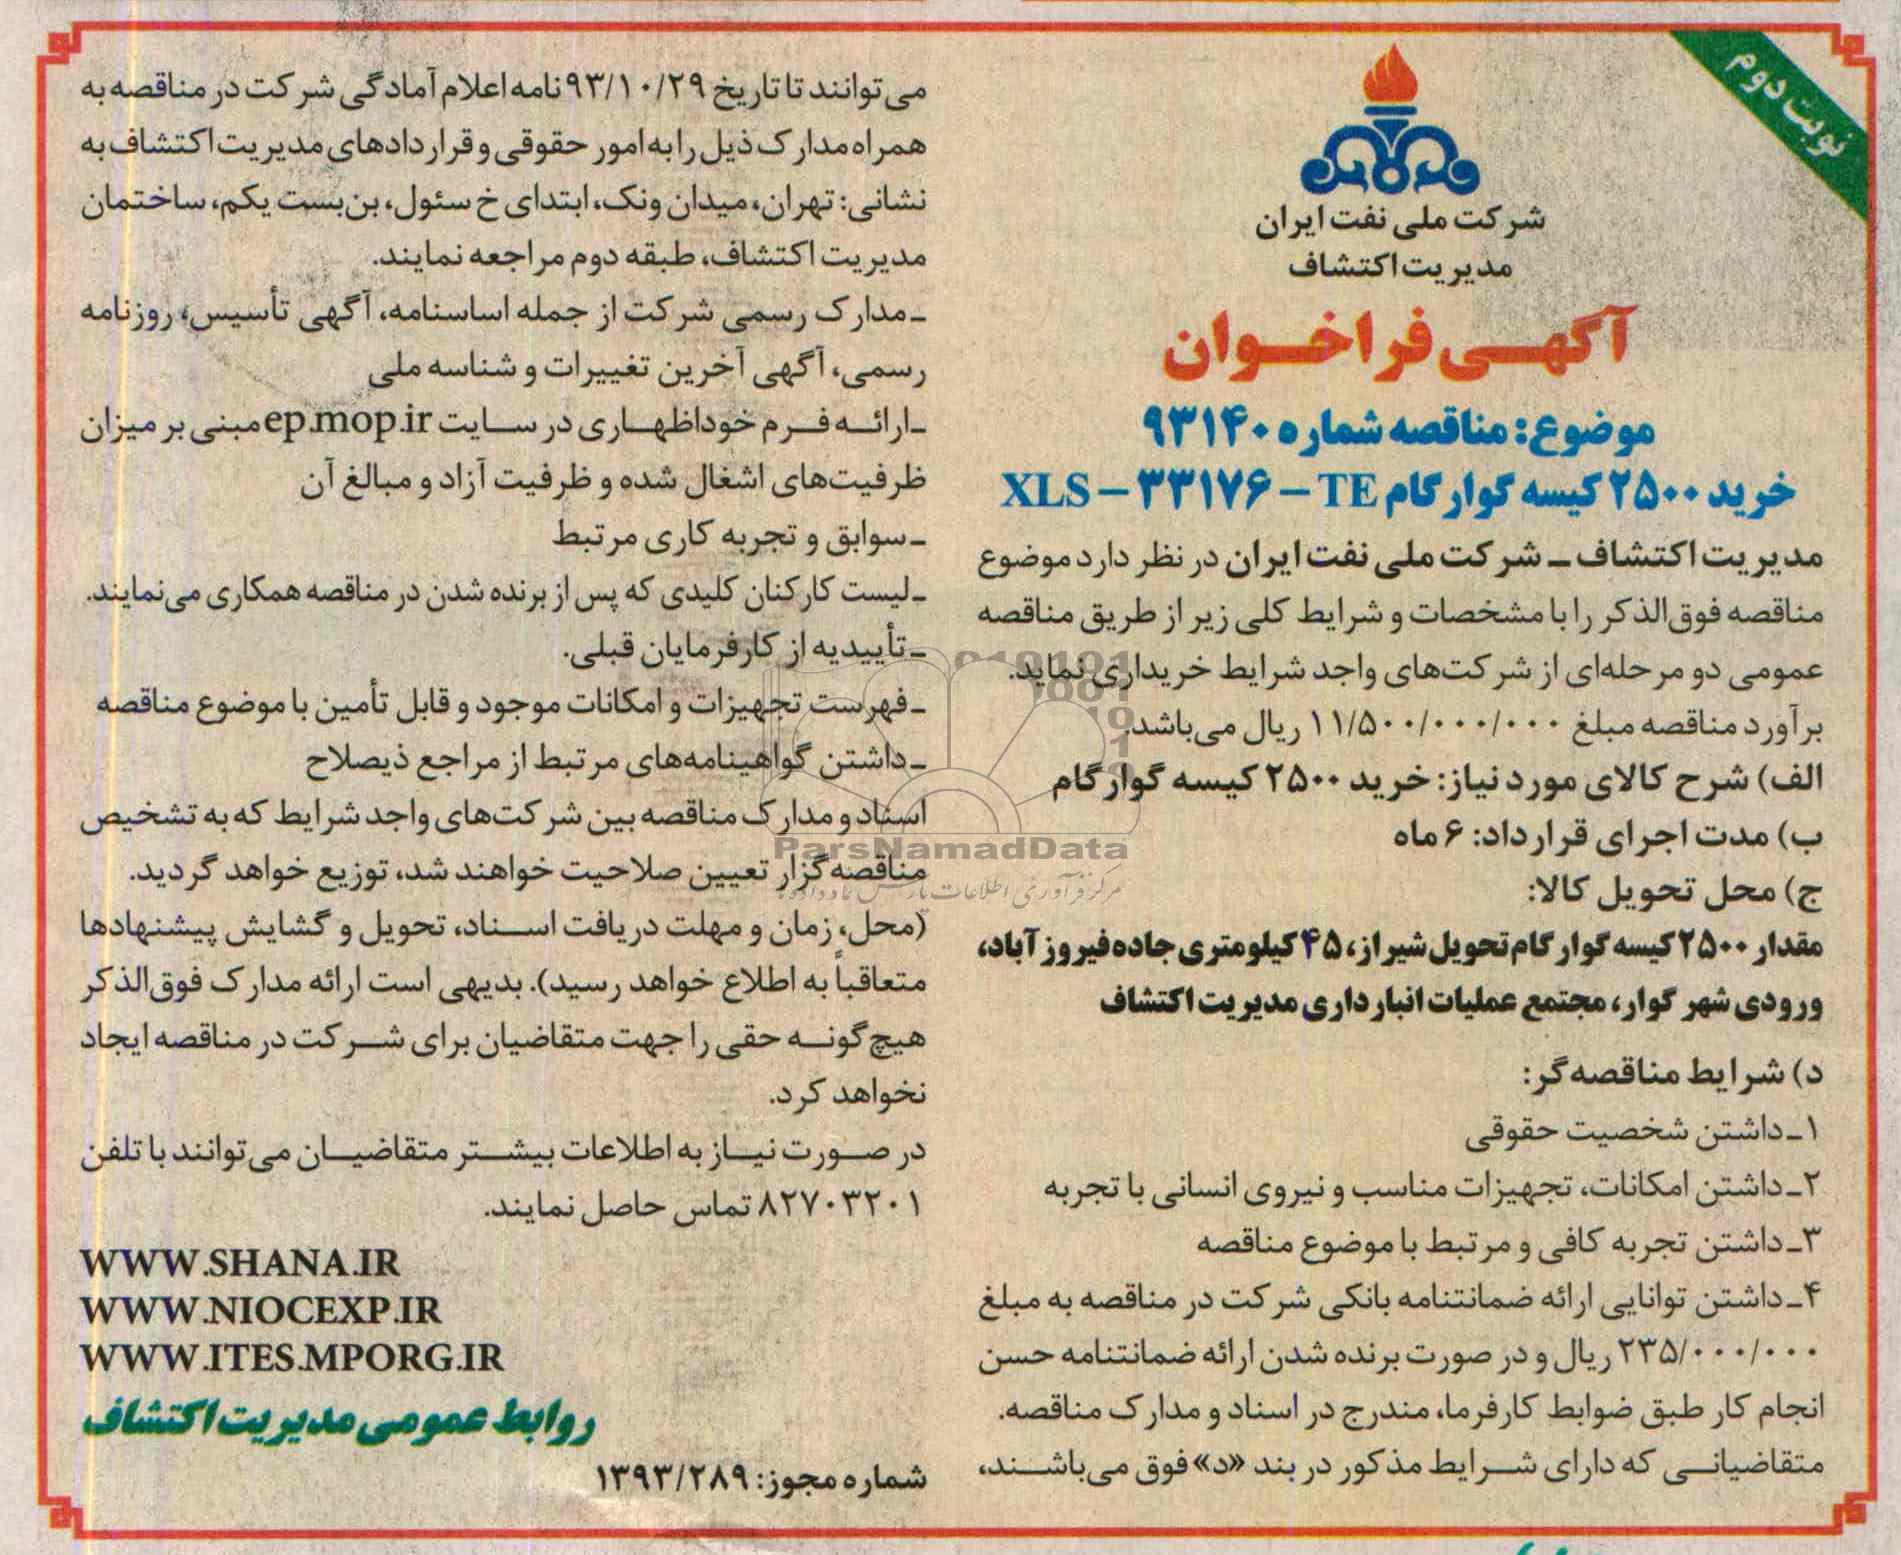 نوبت دوم
شرکت ملی نفت ایران
مدیریت اکتشاف
آگهی فراخوان
موضوع: مناقصه شماره ۹۳۱۴۰
خرید ۲۵۰۰ کیسه گوارگام XLS – ۳۳۱۷۶ – TE
مدیریت اکتشاف ـ شرکت ملی نفت ایران در نظر دارد موضوع
مناقصه فوق‌الذکر را با مشخصات و شرایط کلی زیر از طریق مناقصه
عمومی دو مرحله‌ای از شرکت‌های واجد شرایط خریداری نماید.
برآورد مناقصه مبلغ ۱۱/۵۰۰/۰۰۰/۰۰۰ ریال می‌باشد.
الف) شرح کالای مورد نیاز: خرید ۲۵۰۰ کیسه گوارگام
ب) مدت اجرای قرارداد: ۶ ماه
ج) محل تحویل کالا:
مقدار ۲۵۰۰ کیسه گوارگام تحویل شیراز، ۴۵ کیلومتری جاده فیروزآباد،
ورودی شهر گوار، مجتمع عملیات انبارداری مدیریت اکتشاف
د) شرایط مناقصه‌گر:
۱ـ داشتن شخصیت حقوقی
۲ـ داشتن امکانات، تجهیزات مناسب و نیروی انسانی با تجربه
۳ـ داشتن تجربه کافی و مرتبط با موضوع مناقصه
۴ـ داشتن توانایی ارائه ضمانتنامه بانکی شرکت در مناقصه به مبلغ
۲۳۵/۰۰۰/۰۰۰ ریال و در صورت برنده شدن ارائه ضمانتنامه حسن
انجام کار طبق ضوابط کارفرما، مندرج در اسناد و مدارک مناقصه.
متقاضیانی که دارای شرایط مذکور در بند «د» فوق می‌باشند،
می‌توانند تا تاریخ ۹۳/۱۰/۲۹ نامه اعلام آمادگی شرکت در مناقصه به
همراه مدارک ذیل را به امور حقوقی و قراردادهای مدیریت اکتشاف به
نشانی: تهران، میدان ونک، ابتدای خ سئول، بن‌بست یکم، ساختمان
مدیریت اکتشاف، طبقه دوم مراجعه نمایند.
ـ مدارک رسمی شرکت از جمله اساسنامه، آگهی تأسیس، روزنامه
رسمی، آگهی آخرین تغییرات و شناسه ملی
ـ ارائه فرم خوداظهاری در سایت ep.mop.ir مبنی بر میزان
ظرفیت‌های اشغال شده و ظرفیت آزاد و مبالغ آن
ـ سوابق و تجربه کاری مرتبط
ـ لیست کارکنان کلیدی که پس از برنده شدن در مناقصه همکاری می‌نمایند.
ـ تأییدیه از کارفرمایان قبلی.
ـ فهرست تجهیزات و امکانات موجود و قابل تأمین با موضوع مناقصه
ـ داشتن گواهینامه‌های مرتبط از مراجع ذیصلاح
اسناد و مدارک مناقصه بین شرکت‌های واجد شرایط که به تشخیص
مناقصه‌گزار تعیین صلاحیت خواهند شد، توزیع خواهد گردید.
(محل، زمان و مهلت دریافت اسناد، تحویل و گشایش پیشنهادها
متعاقباً به اطلاع خواهد رسید). بدیهی است ارائه مدارک فوق‌الذکر
هیچ گونه حقی را جهت متقاضیان برای شرکت در مناقصه ایجاد
نخواهد کرد.
در صورت نیاز به اطلاعات بیشتر متقاضیان می‌توانند با تلفن
۸۲۷۰۳۲۰۱ تماس حاصل نمایند.
WWW.SHANA.IR
WWW.NIOCEXP.IR
WWW.ITES.MPORG.IR
روابط عمومی مدیریت اکتشاف
شماره مجوز: ۱۳۹۳/۲۸۹
ParsNamadData
مرکز فرآوری اطلاعات پارس نماد داده‌ها